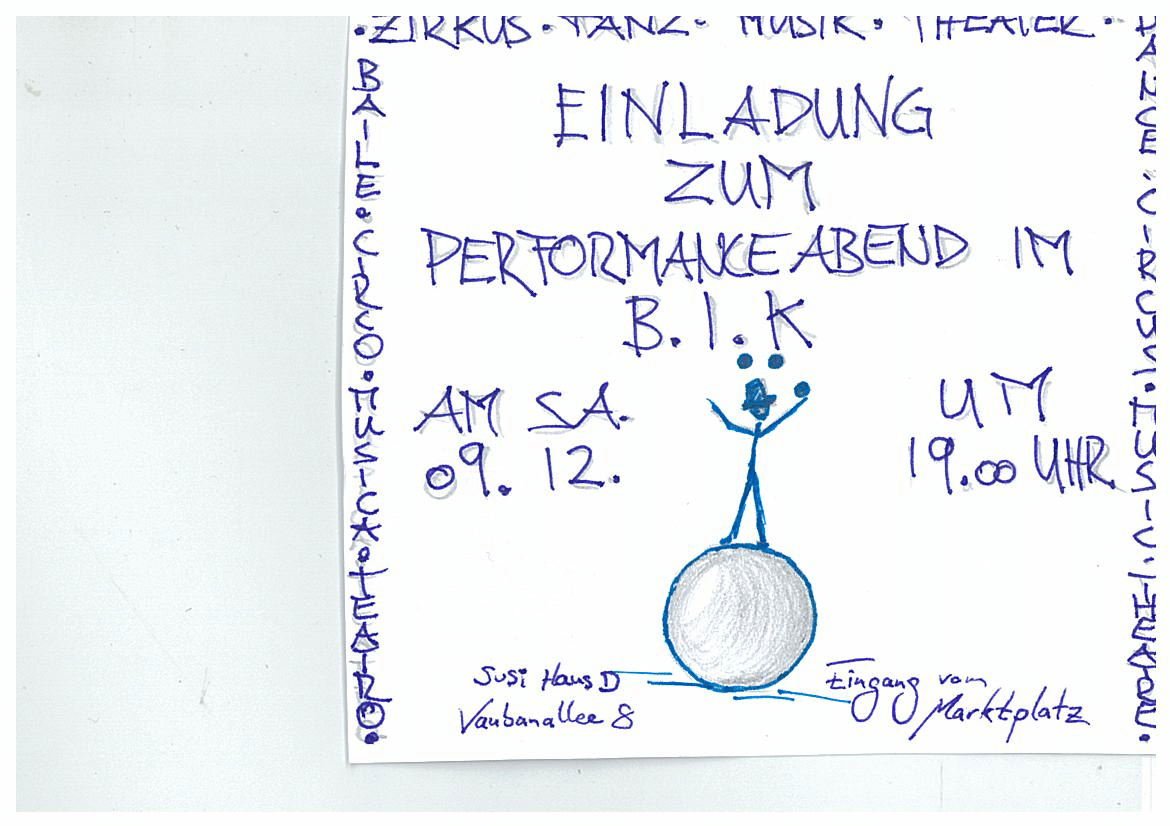 • ZIRKUS • TANZ • MUSIK • THEATER •
BAILE • CIRCO • MUSICA • TEATRO •
EINLADUNG
ZUM
PERFORMANCEABEND IM
B.I.K
AM SA.
09. 12.
UM
19.00 UHR
Susi Haus D
Vaubanallee 8
Eingang vom
Marktplatz
DANCE • CIRCUS • MUSIC •